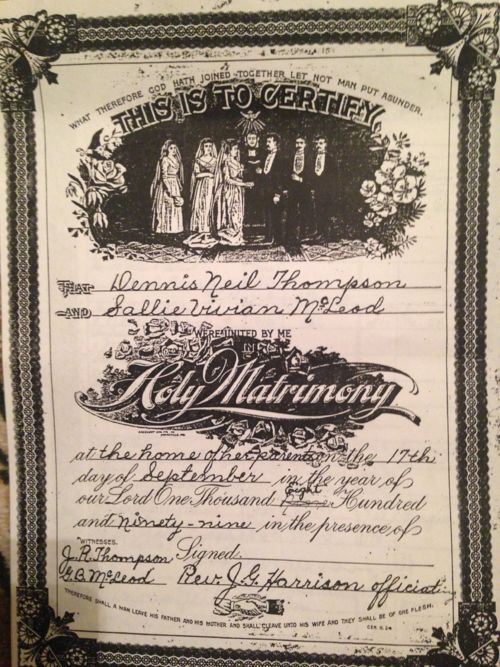 WHAT THEREFORE GOD HATH JOINED TOGETHER LET NOT MAN PUT ASUNDER.
THIS IS TO CERTIFY,
THAT Dennis Neil Thompson
AND Sallie Vivian McLeod
WERE UNITED BY ME
IN
Holy Matrimony
at the home of her parents on the 17th
day of September in the year of
our Lord One Thousand Eight Hundred
and Ninety-nine in the presence of
WITNESSES. Signed.
J. R. Thompson
G. B. McLeod Rev J. G. Harrison official
THEREFORE SHALL A MAN LEAVE HIS FATHER AND HIS MOTHER AND SHALL CLEAVE UNTO HIS WIFE AND THEY SHALL BE OF ONE FLESH.
GEN. II. 24